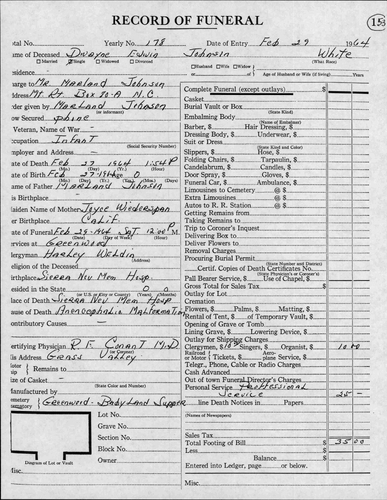 RECORD OF FUNERAL
158
Total No. Yearly No. 178 Date of Entry Feb 29 1964
Name of Deceased Dwayne Edwin Johnson White
Married Single Widowed Divorced Husband Wife Widow (What Race)
Residence of Age of Husband or Wife (if living) Years
Charge to Mr. Marland Johnson
Address Mt. Rt. Box 30-A N.C.
Order given by Marland Johnson
(or informant)
How Secured phone
Veteran, Name of War -
Occupation Infant
(Social Security Number)
Employer and Address -
Date of Death Feb 27 1964 1:54 P
Date of Birth Feb 27-1964 Age 0
Name of Father Marland Johnson
His Birthplace -
Maiden Name of Mother Joyce Wiederspan
Her Birthplace Calif.
Date of Funeral Feb 29-1964 Sat 12:00 M
Services at Greenwood
Clergyman Harley Wehdin
Religion of the Deceased
Birthplace Sierra Nev Mem Hosp.
Resided in the State 0
Place of Death Sierra Nev Mem Hospt
Cause of Death
Contributory Causes -
Certifying Physician R. F. Conant M.D
(or Coroner)
His Address Grass Valley
Motor Remains to
Size of Casket -
(State Color and Number)
Manufactured by
Greenwood - Babyland Supper
Lot No.
Grave No.
Section No.
Block No.
Owner
Diagram of Lot or Vault
Misc.
Complete Funeral (except outlays) $
Casket
Burial Vault or Box
(State Kind)
Embalming Body
(Name of Embalmer)
Barber, $ Hair Dressing, $
Dressing Body, $ Underwear, $
Suit or Dress
(State Kind and Color)
Slippers, $ Hose, $
Folding Chairs, $ Tarpaulin, $
Candelabrum, $ Candles, $
Door Spray, $ Gloves, $
Funeral Car, $ Ambulance, $
Limousines to Cemetery @ $
Extra Limousines @ $
Autos to R. R. Station @ $
Getting Remains from
Taking Remains to
Trip to Coroner's Inquest
Delivering Box to
Deliver Flowers to
Removal Charges
Procuring Burial Permit
(State Number and District)
Certif. Copies of Death Certificates No.
(State Physician's or Coroner's)
Pall Bearer Service, $ Use of Chapel, $
Gross Total for Sales Tax $
Outlay for Lot
Cremation
Flowers, $ Palms, $ Matting, $
Rental of Tent, $ of Temporary Vault, $
Opening of Grave or Tomb
Lining Grave, $ Lowering Device, $
Outlay for Shipping Charges
Clergymen, $ 10.00 Singers, $ Organist, $ 10 00
Railroad or Motor Tickets, $ Aeroplane Service, $
Telegr., Phone, Cable or Radio Charges
Cash Advanced
Out of town Funeral Director's Charges
Personal Service Professional
Service 25 -
line Death Notices in Papers
(Names of Newspapers)
Sales Tax
Total Footing of Bill $ 35 00
Less
Balance $
Entered into Ledger, page or below.
Misc.